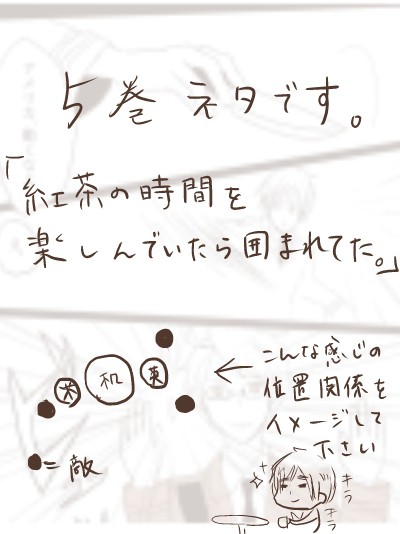 5巻ネタです。
「紅茶の時間を
楽しんでいたら囲まれてた。」
米 机 英
こんな感じの
位置関係を
イメージして
下さい
●=敵
キラ
キラ